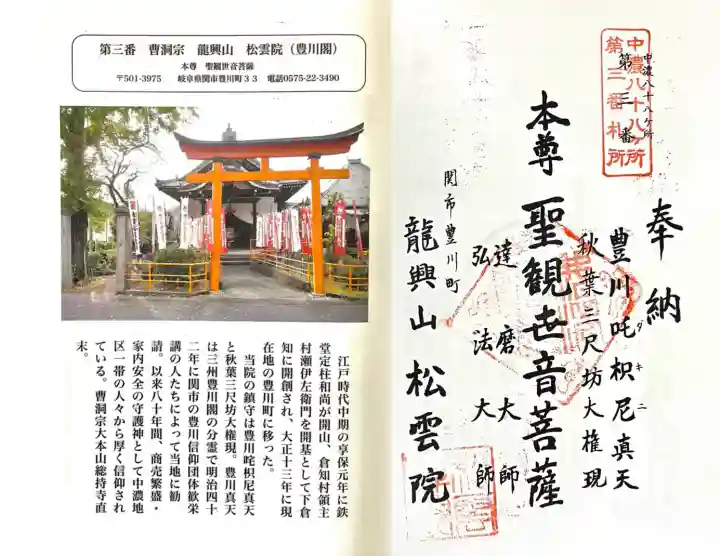 第三番 曹洞宗 龍興山 松雲院（豊川閣）
本尊 聖観世音菩薩
〒501-3975 岐阜県関市豊川町３３ 電話0575-22-3490
江戸時代中期の享保元年に鉄
堂定柱和尚が開山、倉知村領主
村瀬伊左衛門を開基として下倉
知に開創され、大正十三年に現
在地の豊川町に移った。
当院の鎮守は豊川咤枳尼真天
と秋葉三尺坊大権現。豊川真天
は三州豊川閣の分霊で明治四十
二年に関市の豊川信仰団体歓栄
講の人たちによって当地に勧
請。以来八十年間、商売繁盛・
家内安全の守護神として中濃地
区一帯の人々から厚く信仰され
ている。曹洞宗大本山総持寺直
末。
中濃八十八ヶ所
第三番札所
中濃八十八ヶ所
第三番
奉納
豊川吒枳尼真天
ダキニ
秋葉三尺坊大権現
本尊 聖観世音菩薩
達磨大師
弘法大師
関市豊川町
龍興山 松雲院